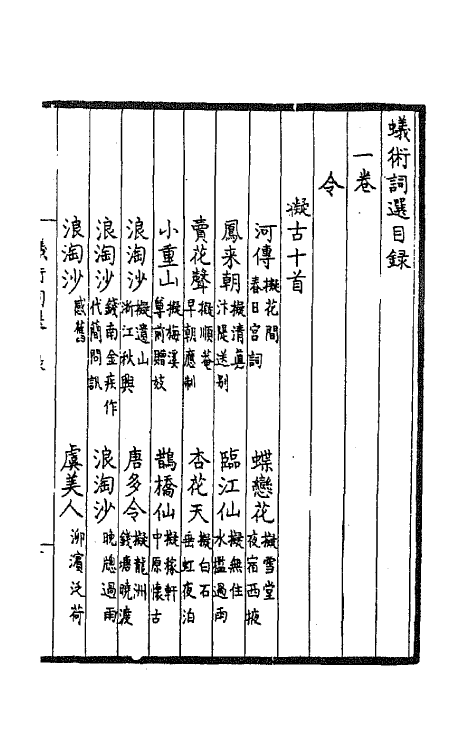 蟻術詞選目録
一卷
令
擬古十首
河傳 擬花間 春日宮詞
蝶戀花 擬雪堂 夜宿西掖
鳳来朝 擬清真 汴隄送别
臨江仙 擬無住 水檻過雨
賣花聲 擬順菴 早朝應制
杏花天 擬白石 垂虹夜泊
小重山 擬梅溪 尊前贈妓
鵲橋仙 擬稼軒 中原懷古
浪淘沙 擬遺山 浙江秋興
唐多令 擬龍洲 錢塘曉渡
浪淘沙 錢南金疾作 代簡問訊
浪淘沙 曉牕過雨
浪淘沙 感舊
虞美人 泖濱泛荷